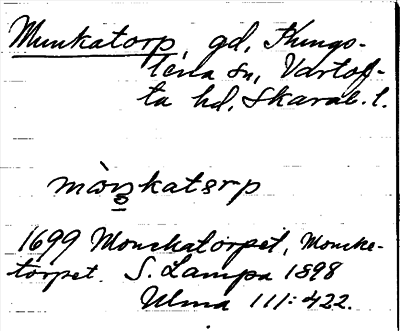 Munkatorp, gd, Kungs-
lena sn, Vartof-
ta hd, Skarab. l.
màn̥katərp
1699 Monckatorpet, Moncke-
torpet. S. Lampa 1898
Ulma 111:422.